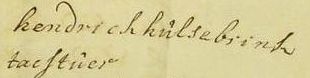 hendrich hülsebrink
tacstüer